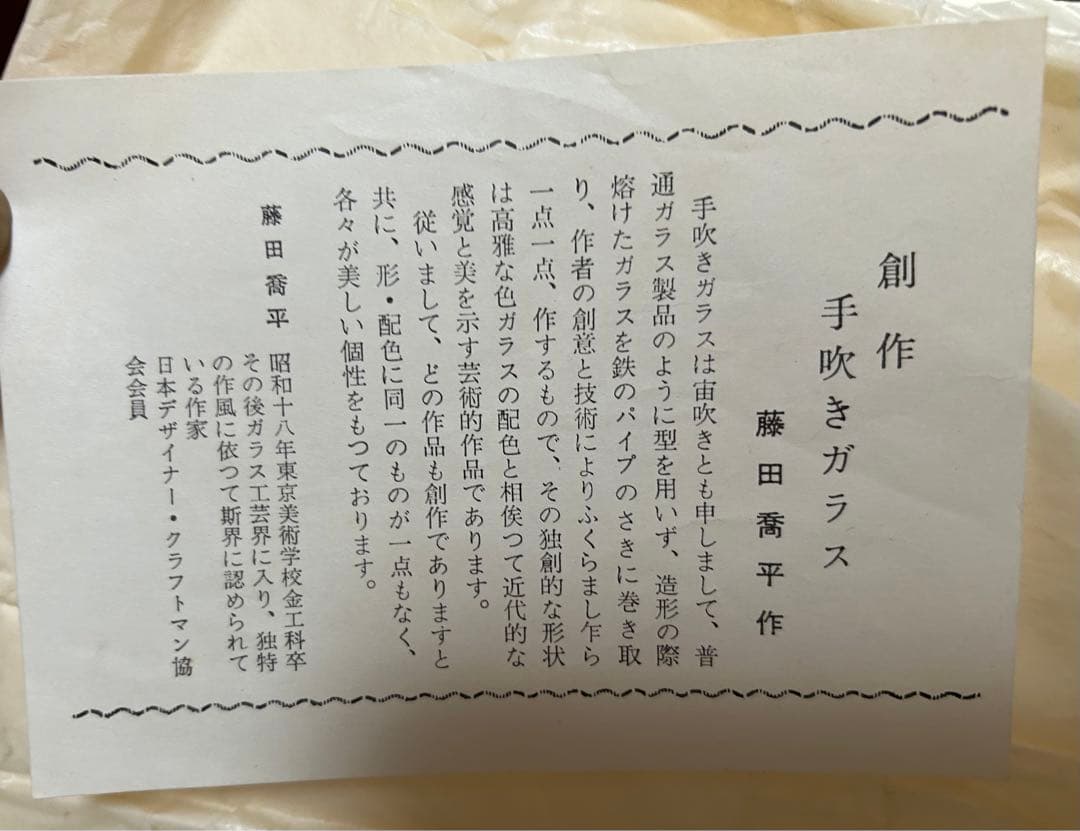 創作
手吹きガラス
藤田喬平作
手吹きガラスは宙吹きとも申しまして、普
通ガラス製品のように型を用いず、造形の際
熔けたガラスを鉄のパイプのさきに巻き取
り、作者の創意と技術によりふくらまし乍ら
一点一点、作するもので、その独創的な形状
は高雅な色ガラスの配色と相俟つて近代的な
感覚と美を示す芸術的作品であります。
従いまして、どの作品も創作でありますと
共に、形・配色に同一のものが一点もなく、
各々が美しい個性をもつております。
藤田喬平
昭和十八年東京美術学校金工科卒
その後ガラス工芸界に入り、独特
の作風に依つて斯界に認められて
いる作家
日本デザイナー・クラフトマン協
会会員